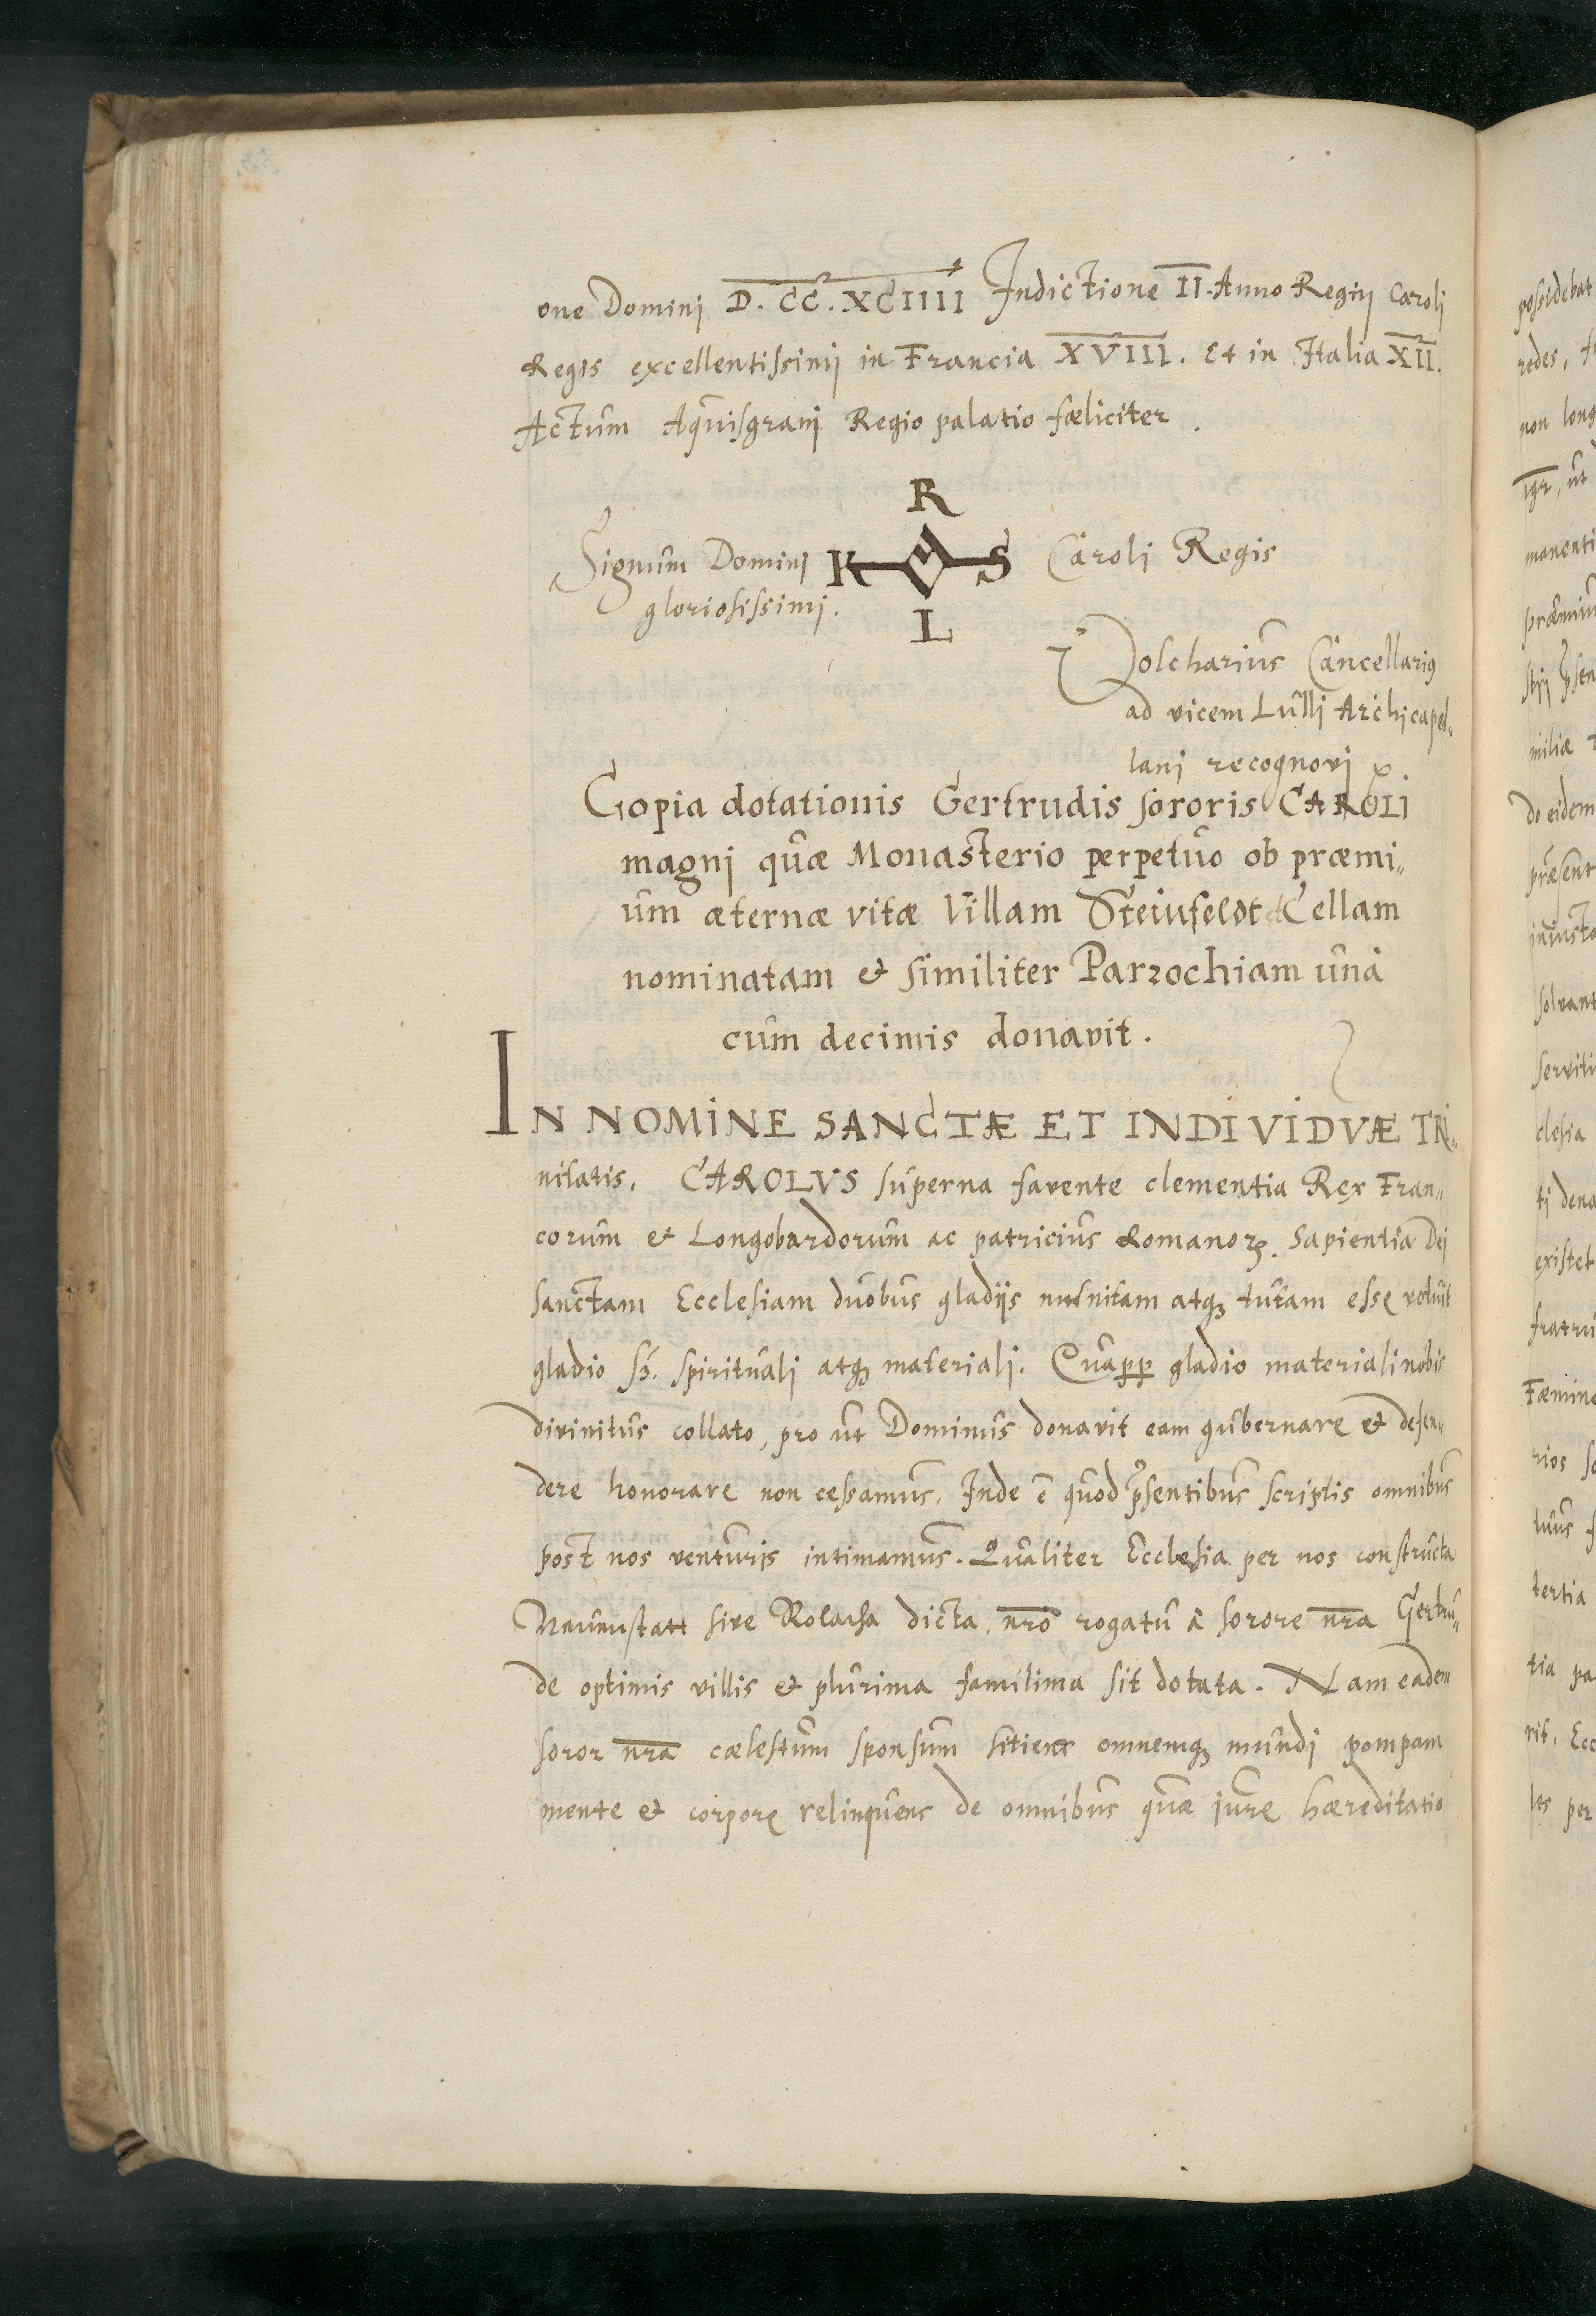 one Dominj D. CC. XCIIII Indictione II. Anno Regnj Caroli
Regis excellentissimj in Francia XVIII. Et in Italia XII.
Actum Aquisgranj Regio palatio fæliciter.
R
Signum Dominj K S Caroli Regis
gloriosissimj.
L
Dolcharius Cancellarius
ad vicem Lullj Archicapel„
lanj recognovj
Copia dotationis Gertrudis sororis CAROLI
magnj quæ Monasterio perpetuo ob præmi„
um æternæ vitæ Villam Steinfeldt et Cellam
nominatam & similiter Parrochiam unà
cum decimis donavit.
IN NOMINE SANCTÆ ET INDIVIDVÆ TRI„
nitatis. CAROLVS superna favente clementia Rex Fran„
corum & Longobardorum ac patricius Romanorꝫ. Sapientia Dei
sanctam Ecclesiam duobus gladijs munitam atqꝫ tutam esse voluit
gladio sꝫ. spirituali atqꝫ materiali. Quaꝓꝓ gladio materiali nobis
divinitus collato, pro ut Dominus donavit eam gubernare & defen„
dere honorare non cessamus. Inde ē quod p̃sentibus scriptis omnibus
post nos venturis intimamus. Qualiter Ecclesia per nos constructa
Nauuustatt sive Rolacha dicta, nr̄o rogatu â sorore nr̄a Gertru„
de optimis villis & plurima familima sit dotata. Nam eadem
soror nr̄a cælestum sponsum sitiens omnemqꝫ mundi pompam
mente & corpore relinquens de omnibus quæ jure hæreditatio
possidebat
redes,
non long
igr̄, ut
manenti
præmium
strj p̃sen
miliæ
do eidem
præsent
iniusta
solvant
serviti
clesia
tj dena
existet
fratru
Fæmine
rios
tuus
tertia
tia pa
rit, Ecc
les per